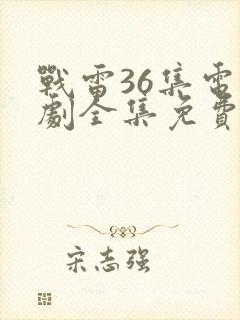 戰雷36集電
劇全集免費
宋志强